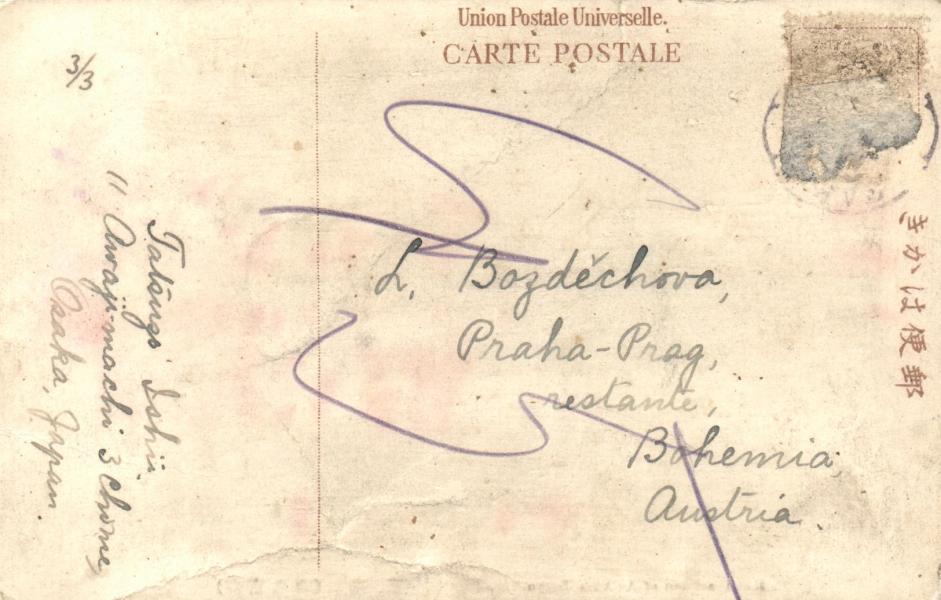 Union Postale Universelle.
CARTE POSTALE
3/3
きかは便郵
L. Bozděchova,
Praha-Prag,
restante,
Bohemia,
Austria.
Ishii
11 Awaji-machi 3 chome,
Osaka, Japan